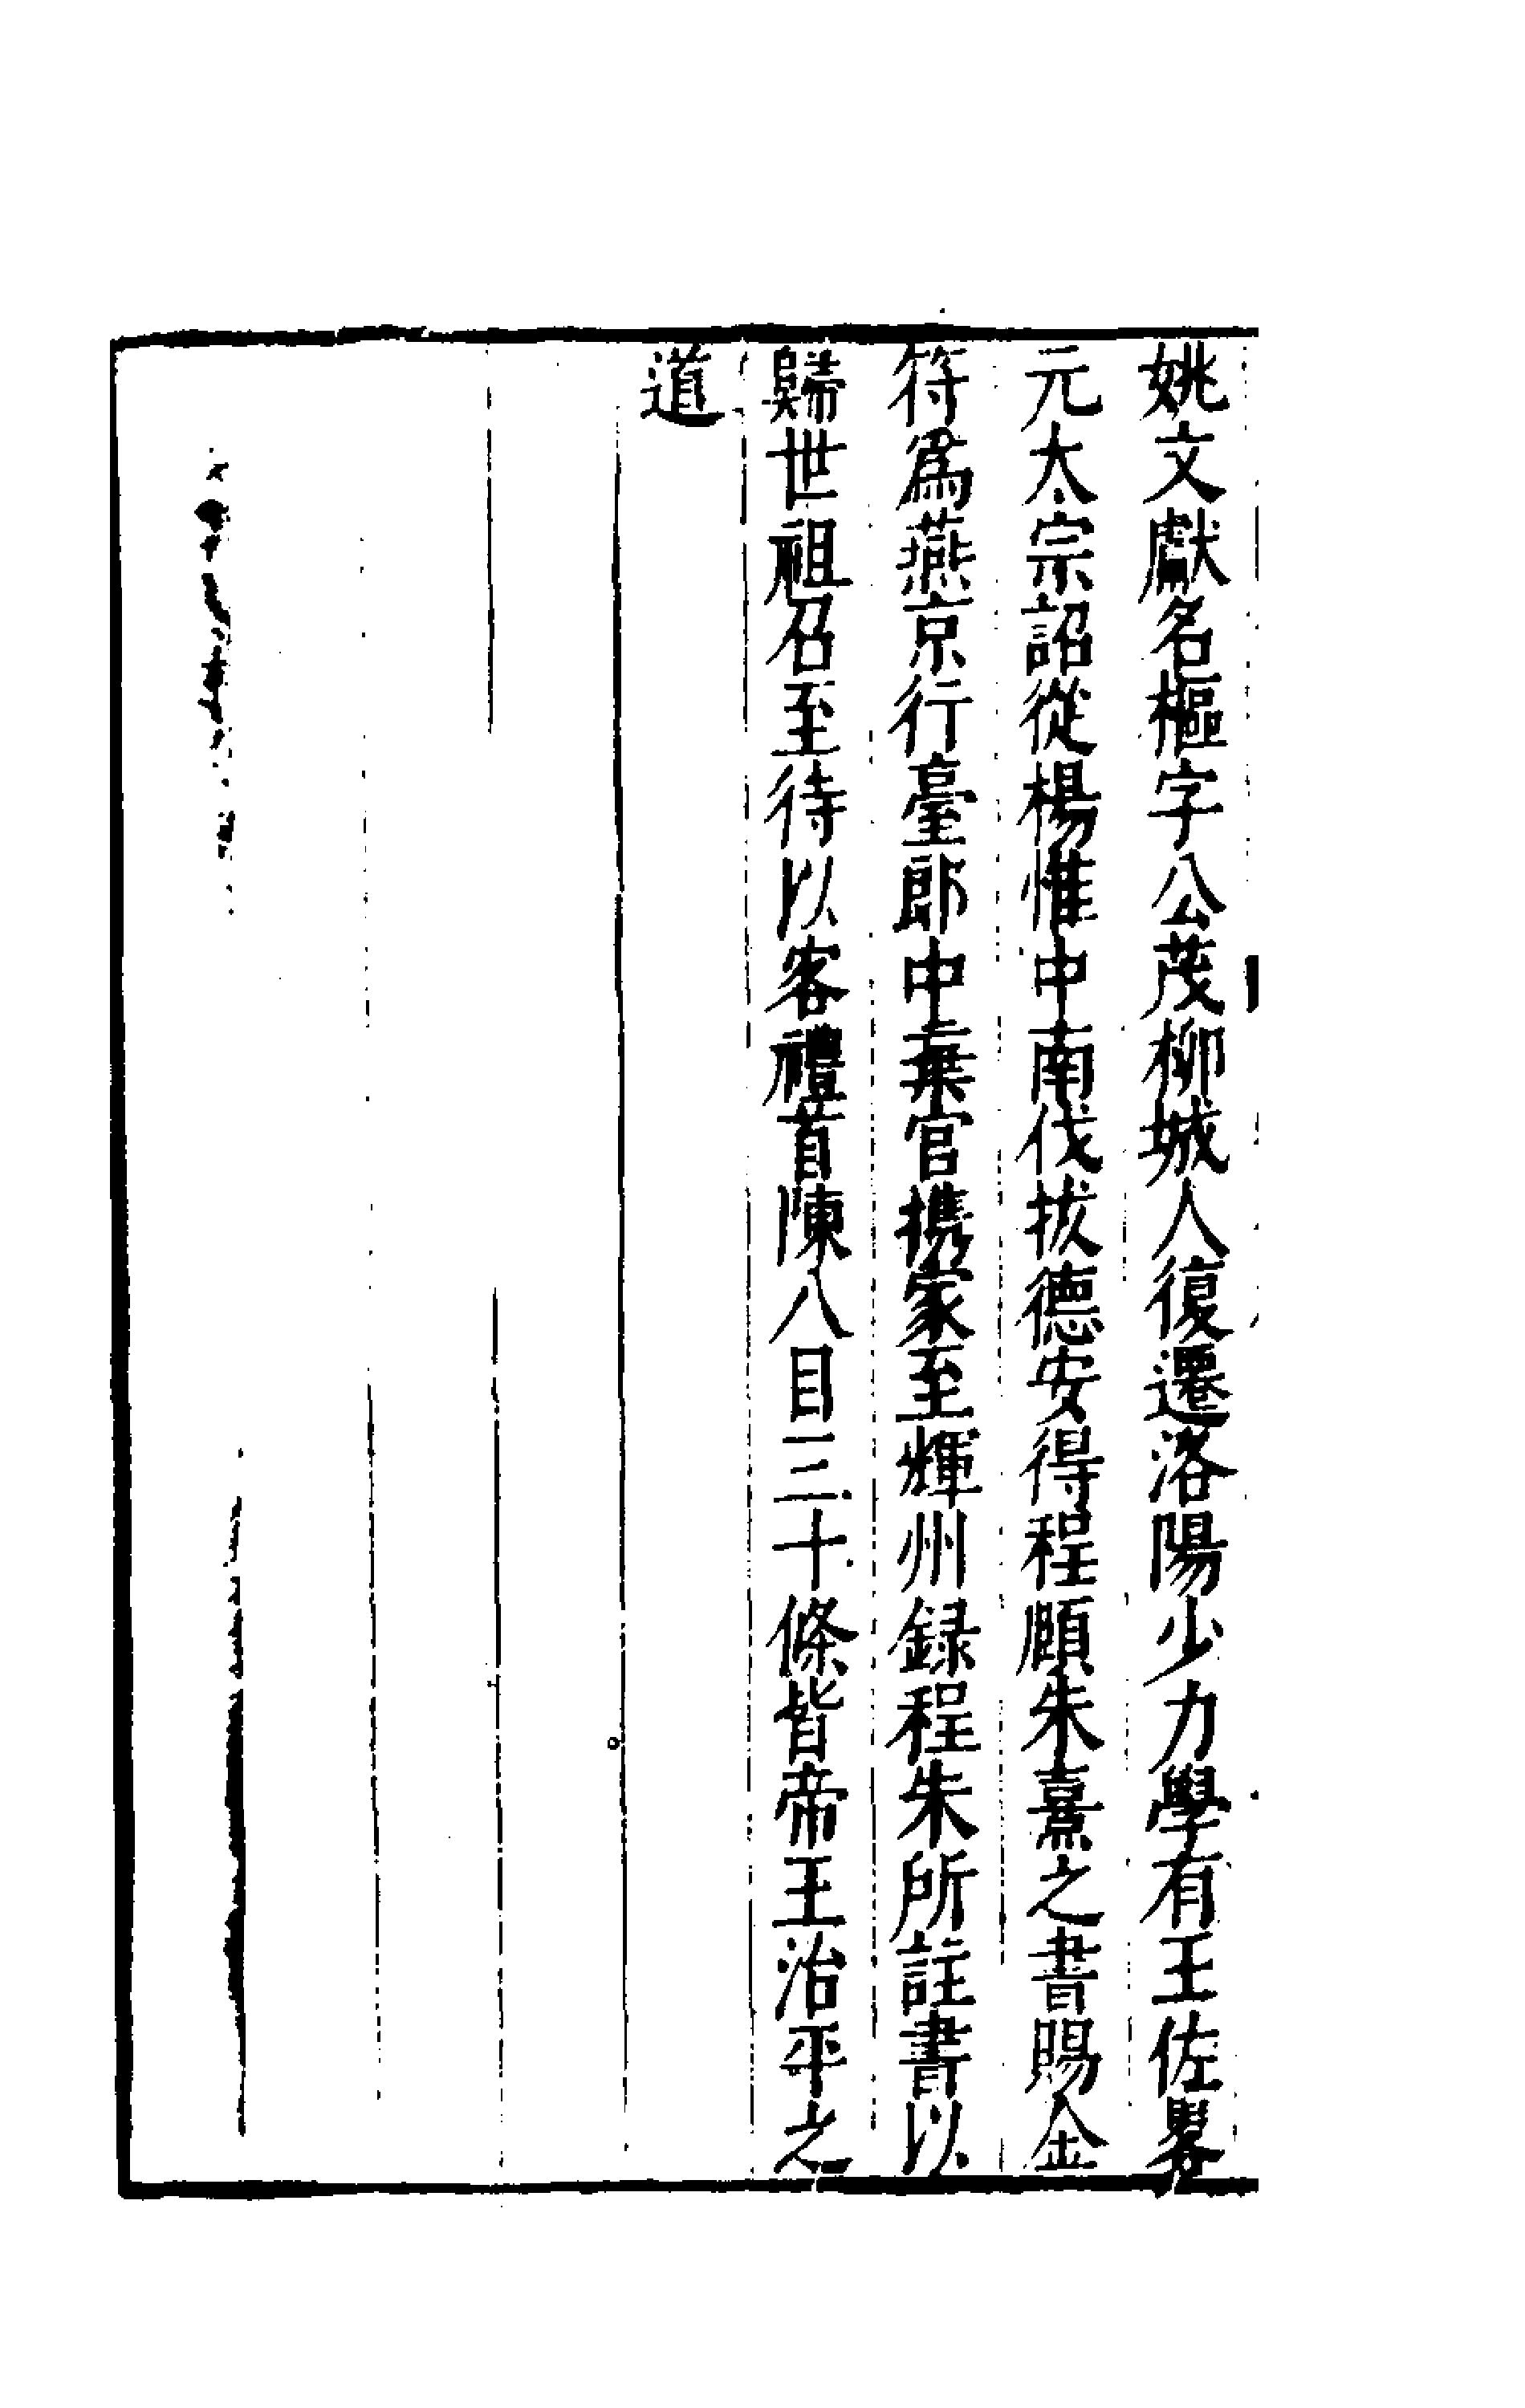 姚文獻名樞字公茂柳城人復遷洛陽少力學有王佐畧
元太宗詔從楊惟中南伐拔德安得程頤朱熹之書賜金
符爲燕京行臺郎中棄官携家至輝州録程朱所註書以
歸世祖召至待以客禮首陳八目三十條皆帝王治平之
道